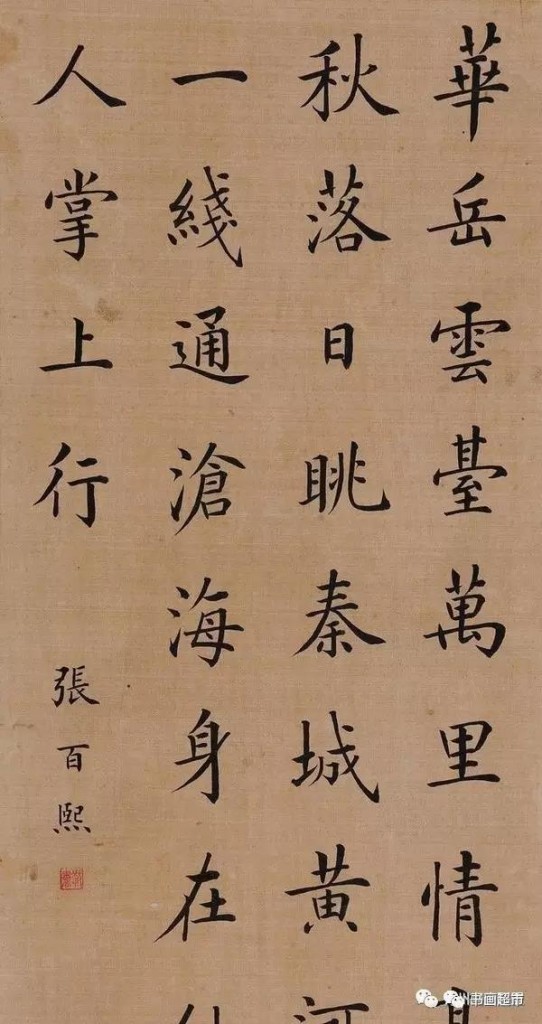 華岳雲臺萬里情
秋落日眺秦城黃河
一綫通滄海身在
人掌上行
張百熙
书画超市